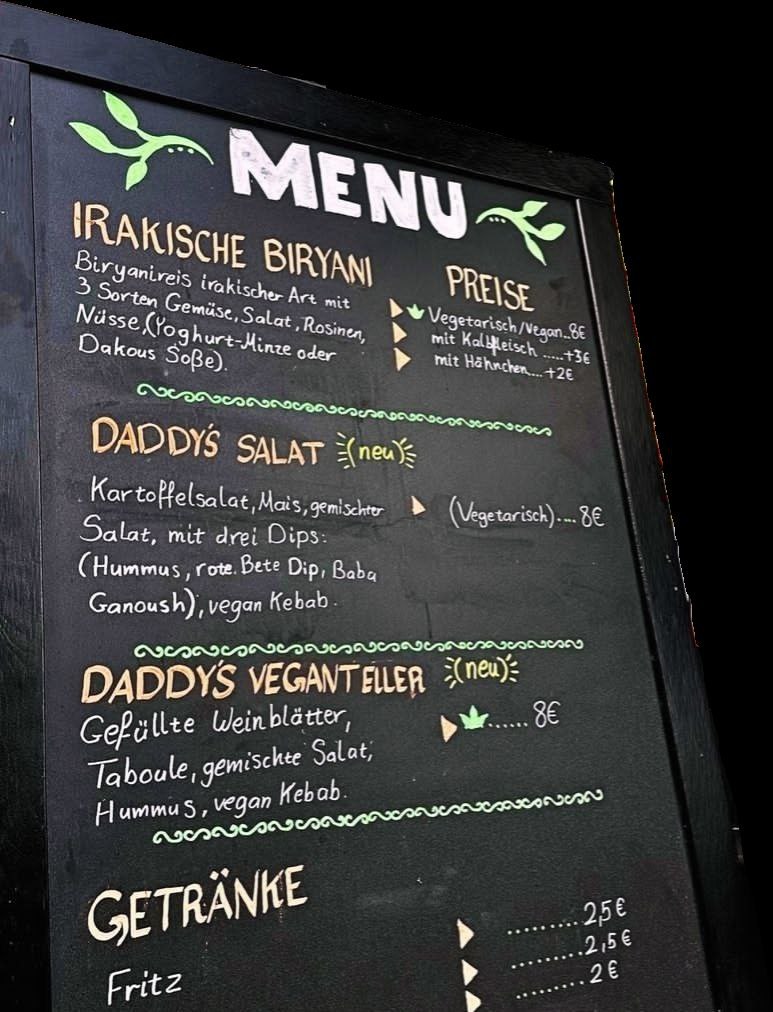 MENU
IRAKISCHE BIRYANI
Biryanireis irakischer Art mit
3 Sorten Gemüse, Salat, Rosinen,
Nüsse,(Yoghurt-Minze oder
Dakous Soße).
PREISE
Vegetarisch/Vegan..8€
mit Kalbfleisch .....+3€
mit Hähnchen....+2€
DADDY'S SALAT (neu)
Kartoffelsalat, Mais, gemischter
Salat, mit drei Dips:
(Hummus, rote Bete Dip, Baba
Ganoush), vegan Kebab.
(Vegetarisch).... 8€
DADDY'S VEGANTELLER (neu)
Gefüllte Weinblätter,
Taboule, gemischte Salat,
Hummus, vegan Kebab.
...... 8€
GETRÄNKE
Fritz
........2,5€
........2,5€
........2€